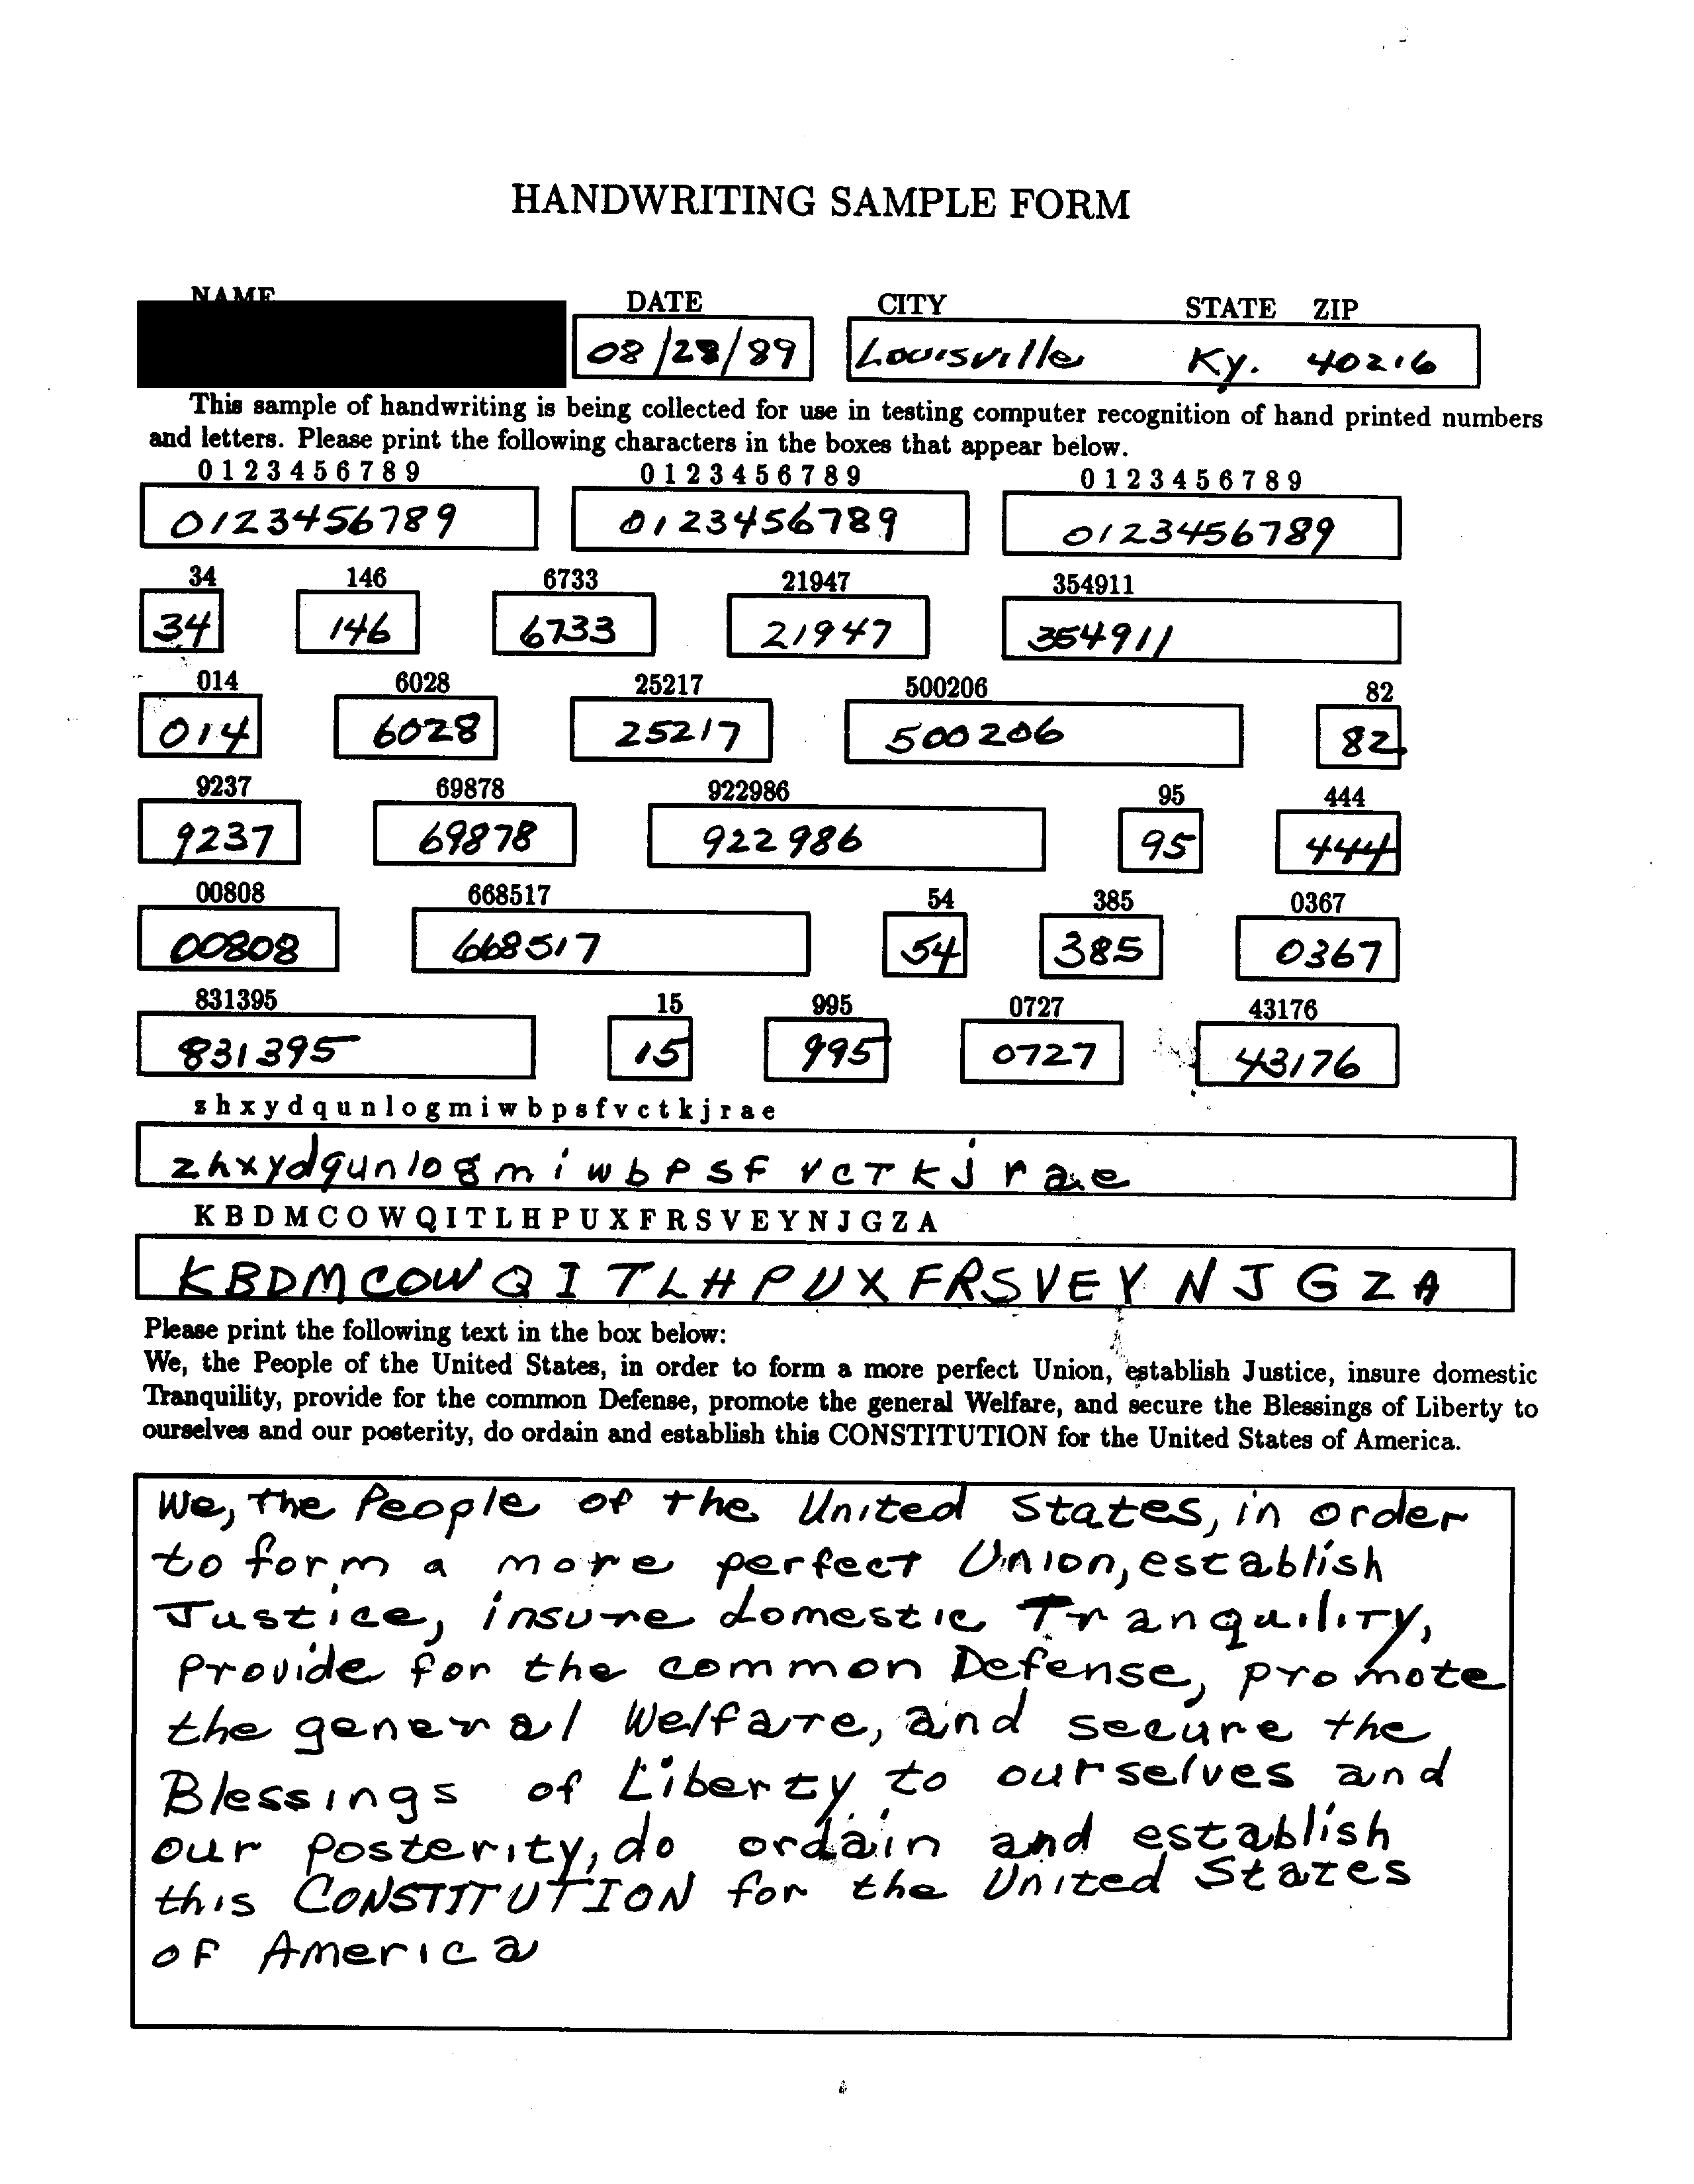 HANDWRITING SAMPLE FORM
NAME DATE CITY STATE ZIP
08/28/89 Louisville Ky. 40216
This sample of handwriting is being collected for use in testing computer recognition of hand printed numbers
and letters. Please print the following characters in the boxes that appear below.
0 1 2 3 4 5 6 7 8 9 0 1 2 3 4 5 6 7 8 9 0 1 2 3 4 5 6 7 8 9
0123456789 0123456789 0123456789
34 146 6733 21947 354911
34 146 6733 21947 354911
014 6028 25217 500206 82
014 6028 25217 500206 82
9237 69878 922986 95 444
9237 69878 922986 95 444
00808 668517 54 385 0367
00808 668517 54 385 0367
831395 15 995 0727 43176
831395 15 995 0727 43176
z h x y d q u n l o g m i w b p s f v c t k j r a e
zhxydqunlogmiwbpsfvctkjrae
K B D M C O W Q I T L H P U X F R S V E Y N J G Z A
KBDMCOWQITLHPUXFRSVEYNJGZA
Please print the following text in the box below:
We, the People of the United States, in order to form a more perfect Union, establish Justice, insure domestic
Tranquility, provide for the common Defense, promote the general Welfare, and secure the Blessings of Liberty to
ourselves and our posterity, do ordain and establish this CONSTITUTION for the United States of America.
We, the People of the United States, in order
to form a more perfect Union, establish
Justice, insure domestic Tranquility,
provide for the common Defense, promote
the general Welfare, and secure the
Blessings of Liberty to ourselves and
our posterity, do ordain and establish
this CONSTITUTION for the United States
of America